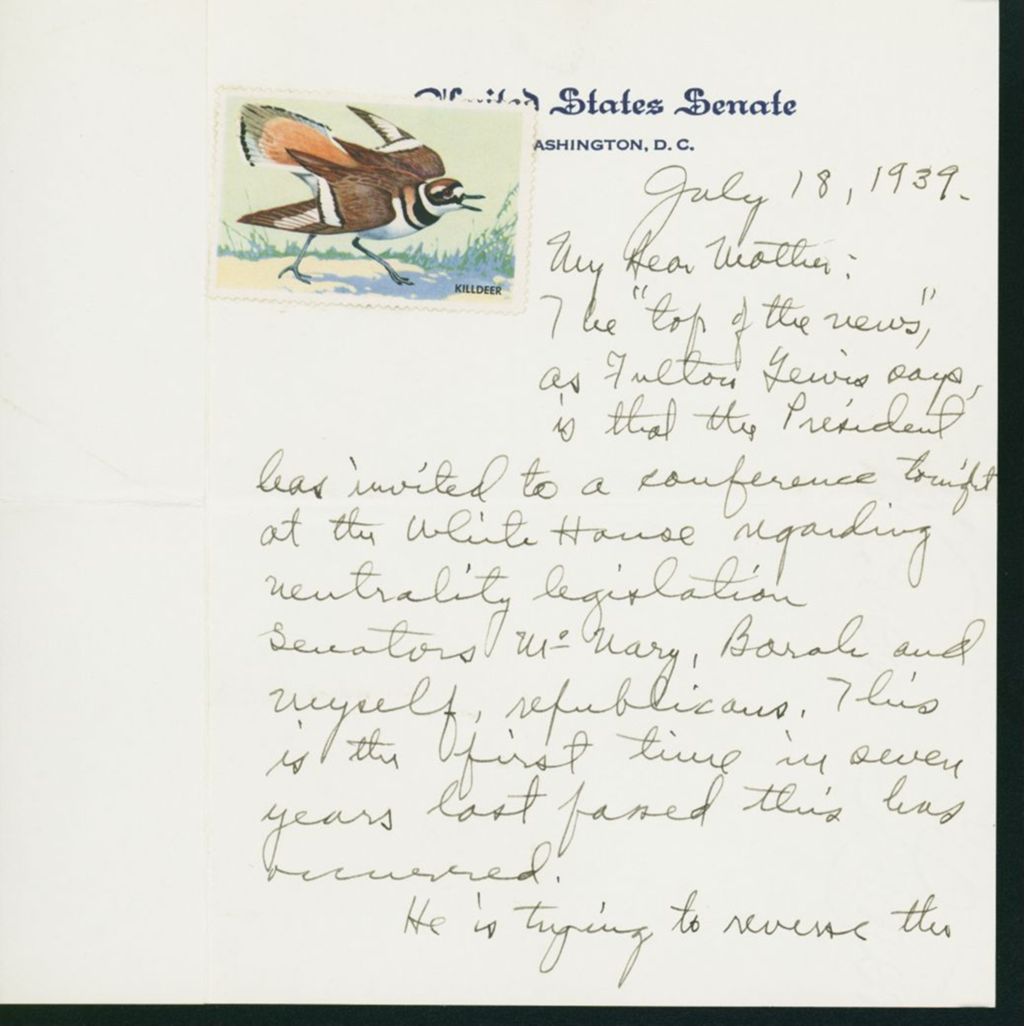 United States Senate
ASHINGTON, D. C.
KILLDEER
July 18, 1939.
My Dear Mother:
The "top of the news",
as Fulton Lewis says,
is that the President
has invited to a conference tonight
at the White House regarding
neutrality legislation
Senators Mc Nary, Borah and
myself, republicans. This
is the first time in seven
years last passed this has
occurred.
He is trying to reverse the